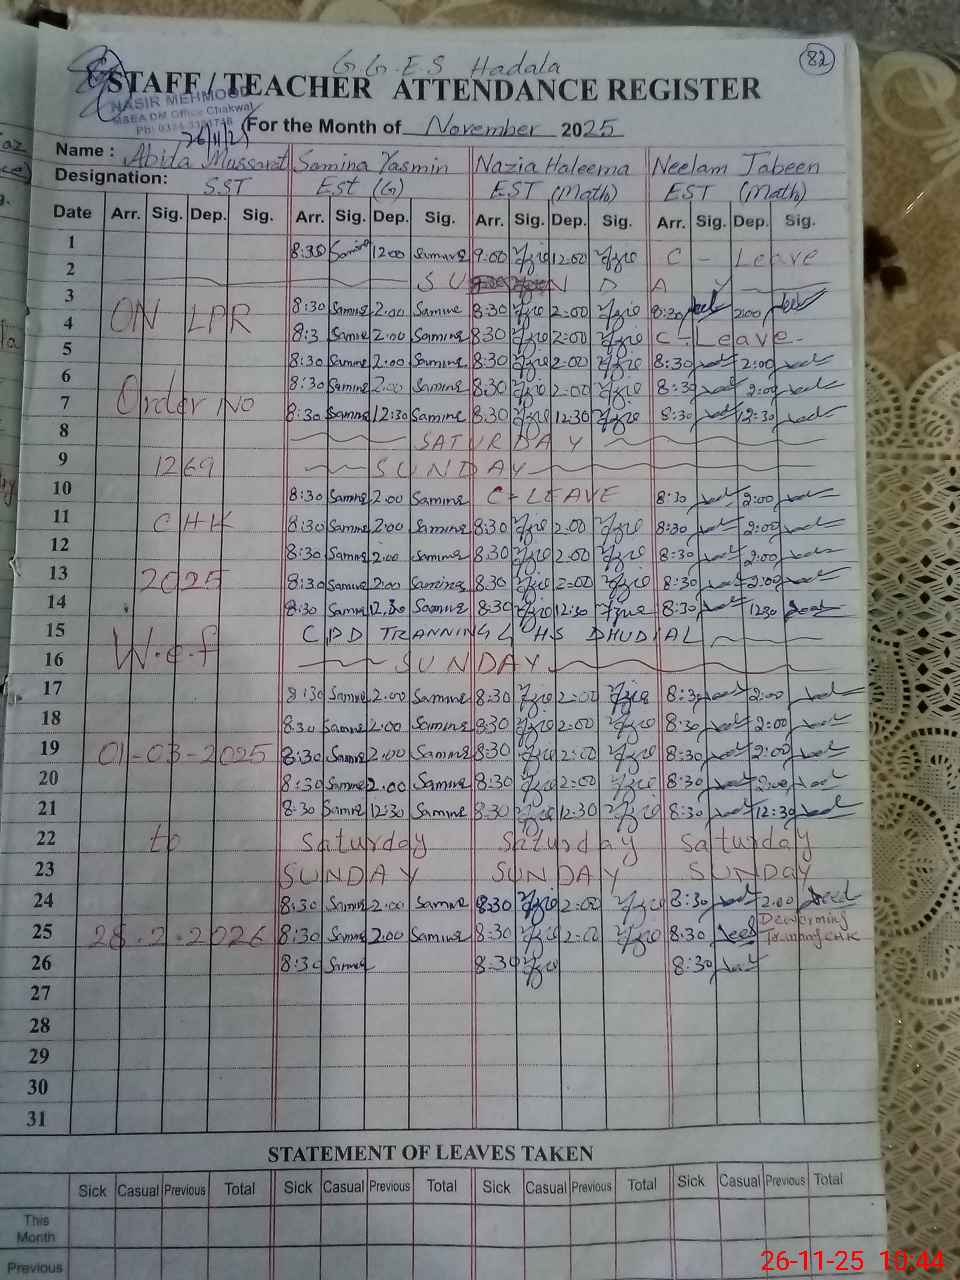 G.G.E.S Hadala
82
STAFF / TEACHER ATTENDANCE REGISTER
NASIR MEHMOOD
M&EA DM Office Chakwal
26/11/25
For the Month of November 2025
Name : Abida Mussarat Samina Yasmin Nazia Haleema Neelam Jabeen
Designation: SST Est (G) EST (Math) EST (Math)
Date Arr. Sig. Dep. Sig. Arr. Sig. Dep. Sig. Arr. Sig. Dep. Sig. Arr. Sig. Dep. Sig.
1 8:30 Samina 12:00 Samina 9:00 12:00 C - Leave
2 SUNDAY
3 ON LPR 8:30 Samina 2:00 Samina 8:30 2:00 8:30 2:00
4 8:3 Samina 2:00 Samina 8:30 2:00 C-Leave-
5 8:30 Samina 2:00 Samina 8:30 2:00 8:30 2:00
6 Order No 8:30 Samina 2:00 Samina 8:30 2:00 8:30 2:00
7 8:30 Samina 12:30 Samina 8:30 12:30 8:30 12:30
8 SATURDAY
9 1269 SUNDAY
10 8:30 Samina 2:00 Samina C-LEAVE 8:30 2:00
11 CHK 8:30 Samina 2:00 Samina 8:30 2:00 8:30 2:00
12 8:30 Samina 2:00 Samina 8:30 2:00 8:30 2:00
13 2025 8:30 Samina 2:00 Samina 8:30 2:00 8:30 2:00
14 8:30 Samina 12:30 Samina 8:30 12:30 8:30 1230
15 CPD TRANNING HS DHUDIAL
16 W.e.f SUNDAY
17 8:30 Samina 2:00 Samina 8:30 2:00 8:30 2:00
18 8:30 Samina 2:00 Samina 8:30 2:00 8:30 2:00
19 01-03-2025 8:30 Samina 2:00 Samina 8:30 2:00 8:30 2:00
20 8:30 Samina 2:00 Samina 8:30 2:00 8:30 2:00
21 8:30 Samina 12:30 Samina 8:30 12:30 8:30 12:30
22 to Saturday Saturday Saturday
23 SUNDAY SUNDAY SUNDAY
24 8:30 Samina 2:00 Samina 8:30 2:00 8:30 2:00
25 28.2.2026 8:30 Samina 2:00 Samina 8:30 2:00 8:30 Deworming
CHK
26 8:30 Samina 8:30 8:30
27
28
29
30
31
STATEMENT OF LEAVES TAKEN
Sick Casual Previous Total Sick Casual Previous Total Sick Casual Previous Total Sick Casual Previous Total
This
Month
Previous
26-11-25 10:44